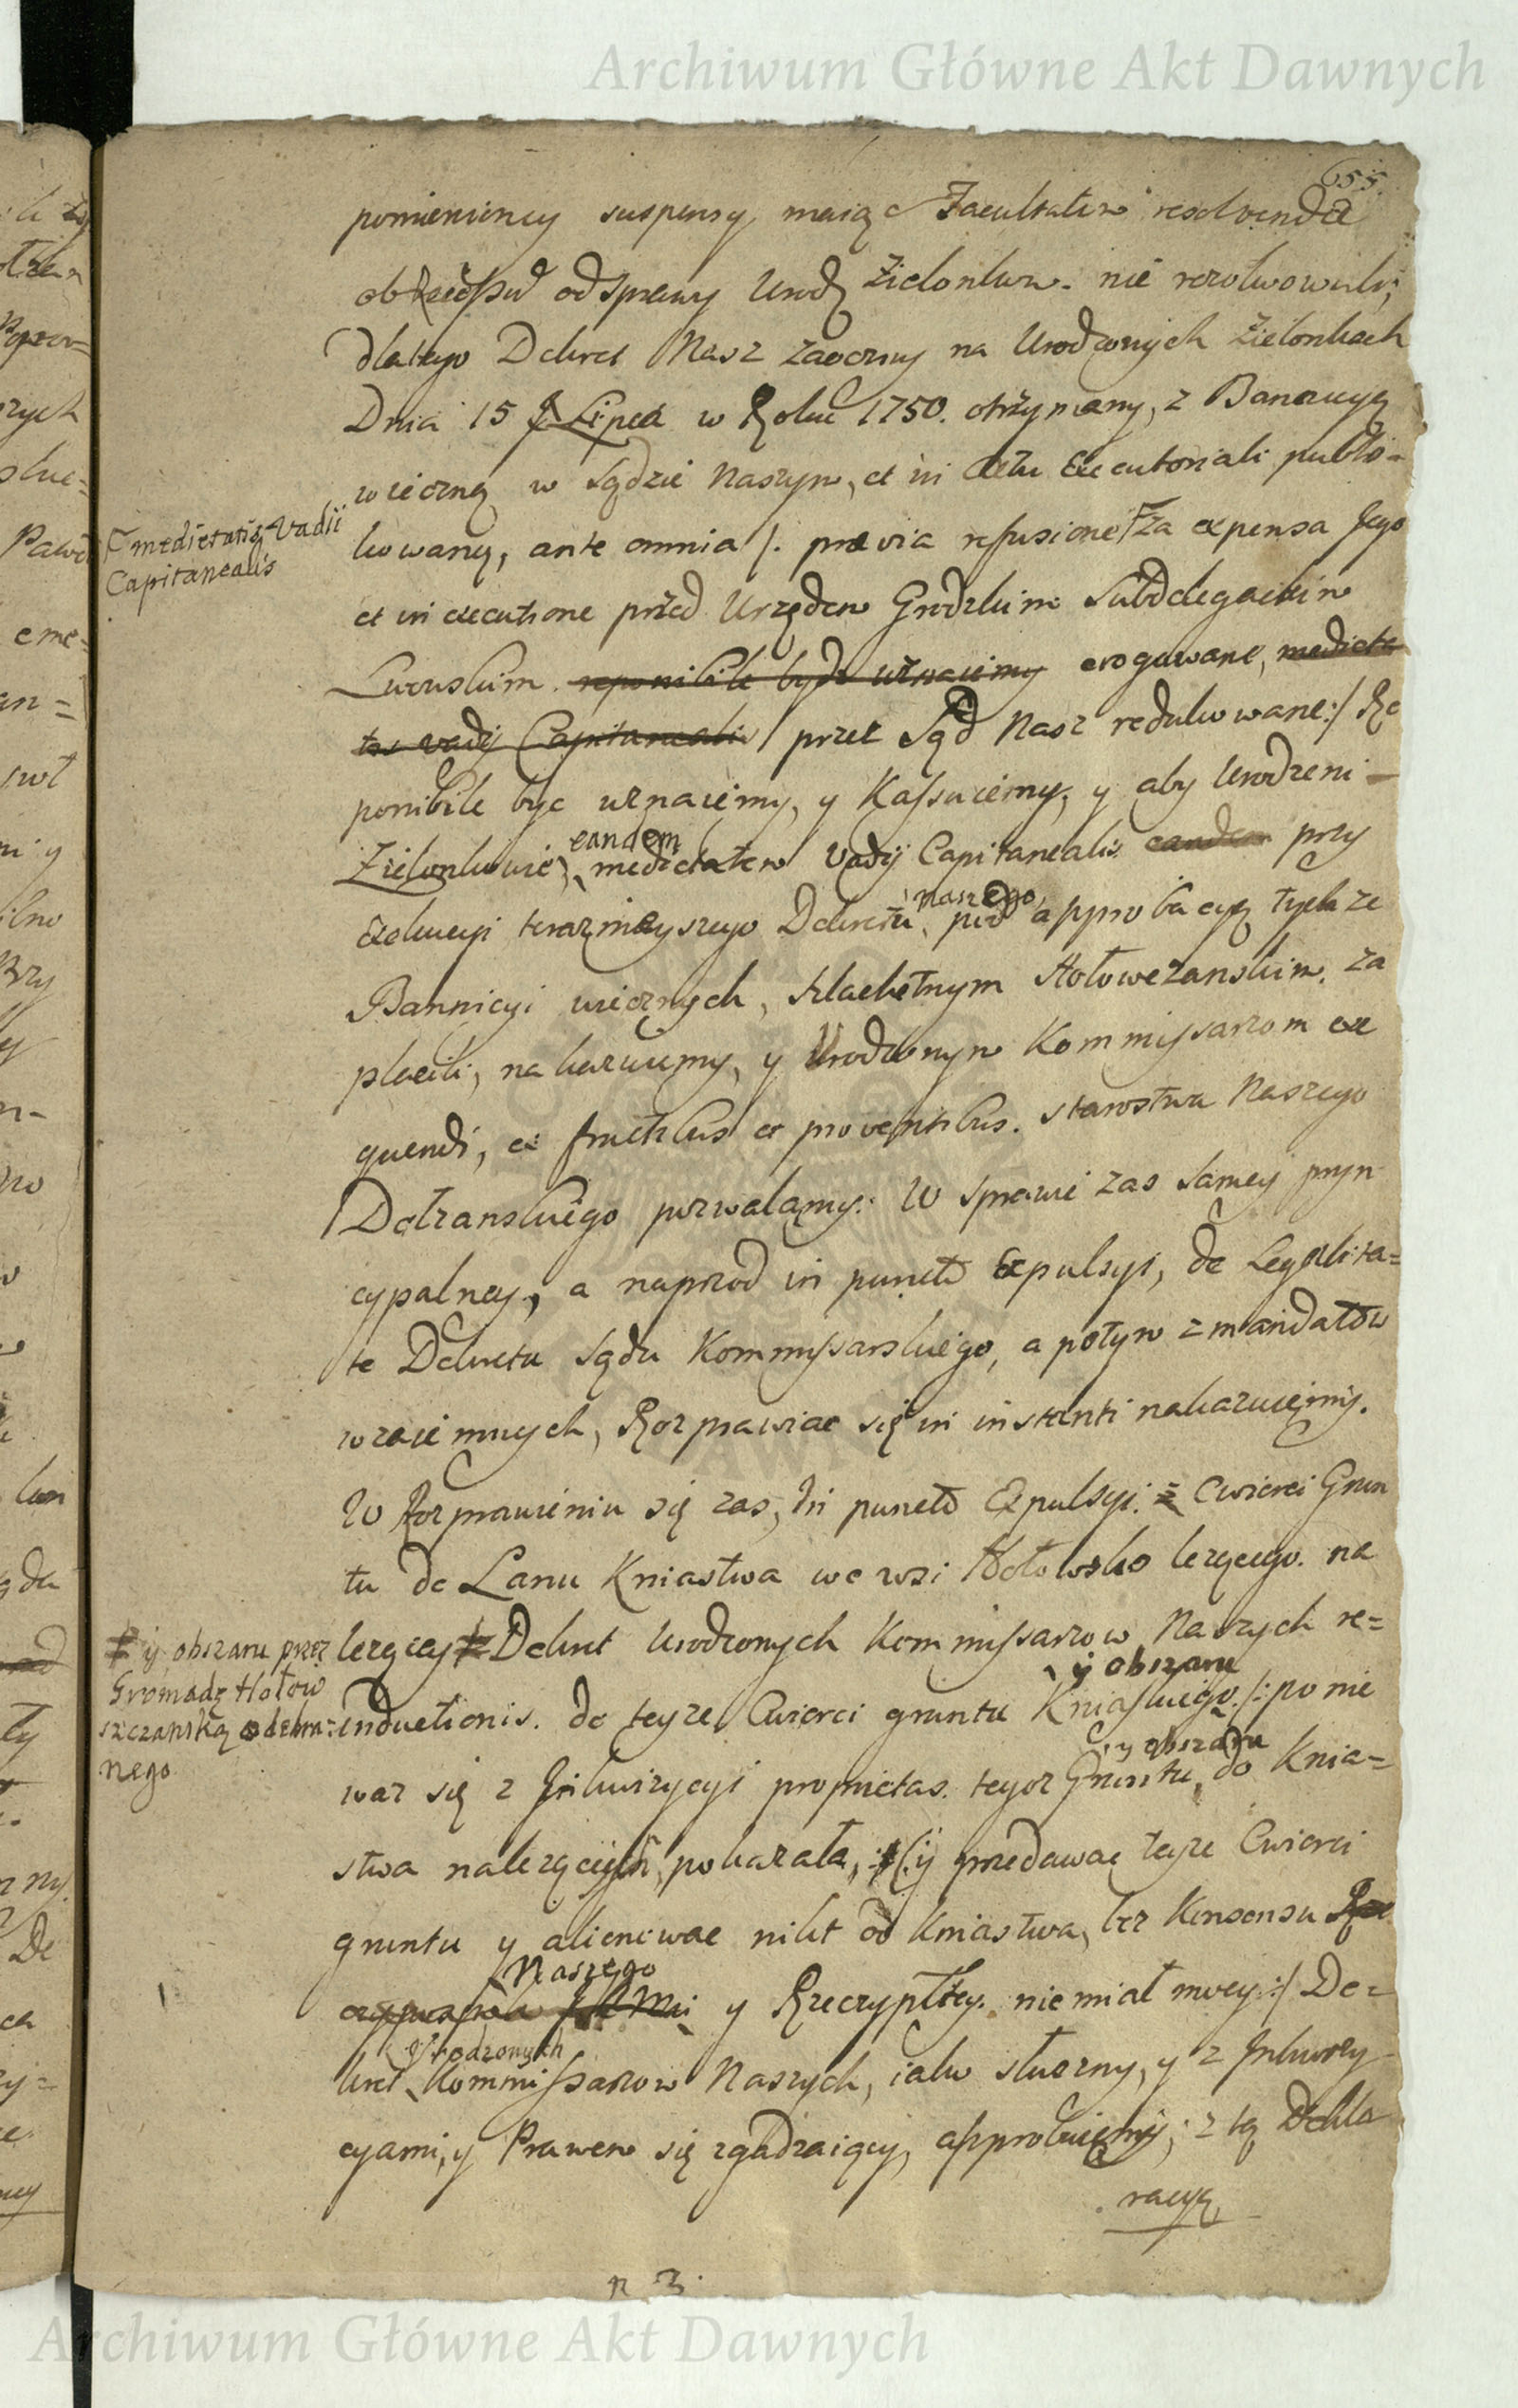 Archiwum Główne Akt Dawnych
655.
pomienioney suspensy maiąc Facultatem resolvendi
od sprawy Urodz Zielonkom. nie rezolwowali,
dlatego Dekret Nasz zaoczny na Urodzonych Zielonkach
Dnia 15 Lipca w Roku 1750. otrzymany, z Bannicyą
wieczną w Sądzie Naszym, et in actu Executoriali publi=
kowaną, ante omnia /. praevia refusione Γ za expensa Jego
Γ medietatis Vadii
Capitanealis
et in executione przed Urzędem Grodzkim Subdelegackim
Lwowskim. reponibile bydź uznaiemy erogowane, medieta
tis vadij Capitanealis przez Sąd Nasz redukowane:/ Re
ponibile być uznaiemy, y Kassuiemy, y aby Urodzeni
Zielonkowie, eandem medietatem Vadij Capitanealis eandem przy
exekucyi teraznieyszego Dekretu naszego, pod approbacyą tychże
Bannicyi wiecznych, Szlachetnym Hołowczanskim. za
płacili, nakazuiemy, y Urodzonym Kommissarzom exe
quendi, ex fructibus et proventibus. Starostwa Naszego
Dolzanskiego pozwalamy: W sprawie zas samey pryn
cypalney, a naprzod in puncto Expulsyi, de Legalita=
te Dekretu Sądu Kommissarskiego, a potym z mandatow
wzaiemnych, Rozprawiac się in instanti nakazuiemy.
W Rozprawieniu się zas, in puncto Expulsyi. z Cwierci Grun
tu de Łanu Kniastwa we wsi Hołowsko leżącego. na
leżącey Dekret Urodzonych Kommissarzow Naszych re=
y obszaru przez
Gromadę Hołow
szczanską odebra=
nego
inductionis. do teyze Cwierci gruntu Kniaskiego y obszaru /: ponie
waz się z Inkwizycyi proprietas. tegoz Gruntu, y obszaru do Knia=
stwa należących pokazała, y przedawac teyze Cwierci
gruntu y alienowac nikt od Kniastwa, bez Konsensu
Naszego y Rzeczyptey. nie miał mocy:/ De=
kret Urodzonych Kommissarzow Naszych, iako słuszny, y z Inkwizy
cyami, y Prawem się zgadzaiący, approbuiemy; z tą Dekla
racyą,
n 3.
Archiwum Główne Akt Dawnych